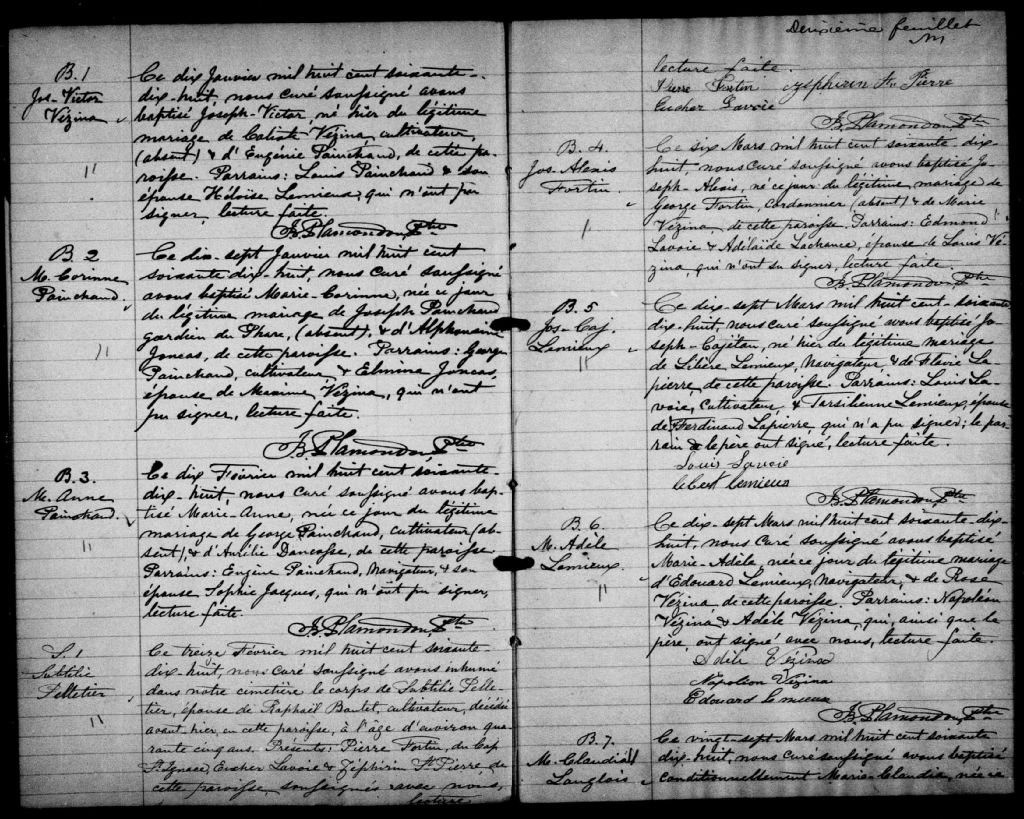 B.1
Jos-Victor
Vézina
Ce dix Janvier mil huit cent soixante-
dix-huit, nous curé soussigné avons
baptisé Joseph-Victor, né hier du légitime
mariage de Calixte Vézina, cultivateur,
(absent) & d'Eugénie Painchaud, de cette pa-
roisse. Parrains: Louis Painchaud & son
épouse Héloïse Lemieux, qui n'ont pu
signer, lecture faite.
J.B. Plamondon, Ptre
B. 2
M. Corinne
Painchaud
Ce dix-sept Janvier mil huit cent
soixante dix-huit, nous curé soussigné
avons baptisé Marie-Corinne, née ce jour
du légitime mariage de Joseph Painchaud
gardien du Phare, (absent), & d'Alphonsine
Joncas, de cette paroisse. Parrains: George
Painchaud, cultivateur & Elmina Joncas,
épouse de Maxime Vézina, qui n'ont
pu signer, lecture faite.
J.B. Plamondon, Ptre
B. 3.
M. Anne
Painchaud
Ce dix Février mil huit cent soixante-
dix-huit, nous curé soussigné avons bap-
tisé Marie-Anne, née ce jour du légitime
mariage de George Painchaud, cultivateur (ab-
sent), & d'Aurélie Dancosse, de cette paroisse
Parrains: Eugène Painchaud, Navigateur, & son
épouse Sophie Jacques, qui n'ont pu signer,
lecture faite
J.B. Plamondon, Ptre
S. 1
Subtilie
Pelletier
Ce treize Février mil huit cent soixante-
dix-huit, nous curé soussigné avons inhumé
dans notre cimetière le corps de Subtilie Pelle-
tier, épouse de Raphaël Boulet, cultivateur, décédée
avant hier, en cette paroisse, à l'âge d'environ qua-
rante cinq ans. Présents: Pierre Fortin, du Cap
St. Ignace, Eucher Lavoie & Zéphirin St. Pierre, de
cette paroisse, soussignés avec nous,
lecture
Deuxième feuillet
lecture faite.
Pierre Fortin Zéphirin St. Pierre
Eucher Lavoie
J.B. Plamondon, Ptre
B. 4.
Jos. Alexis
Fortin
Ce six Mars mil huit cent soixante dix-
huit, nous curé soussigné avons baptisé Jo-
seph-Alexis, né ce jour du légitime mariage de
George Fortin, cordonnier (absent) & de Marie
Vézina, de cette paroisse. Parrains: Edmond
Lavoie & Adélaïde Lachance, épouse de Louis Vé-
zina, qui n'ont su signer, lecture faite.
J.B. Plamondon, Ptre
B. 5
Jos-Caj.
Lemieux
Ce dix-sept Mars mil huit cent soixante
dix-huit, nous curé soussigné avons baptisé Jo-
seph-Cajétan, né hier du légitime mariage
de Libère Lemieux, Navigateur, & de Flavie La-
pierre, de cette paroisse. Parrains: Louis La-
voie, Cultivateur & Tarsilienne Lemieux, épouse
de Ferdinand Lapierre, qui n'a pu signer; le par-
rain & le père ont signé, lecture faite.
Louis Lavoie
lemieux
J.B. Plamondon, Ptre
B. 6.
M. Adèle
Lemieux.
Ce dix-sept Mars mil huit cent soixante-dix-
huit, nous curé soussigné avons baptisé
Marie-Adèle, née ce jour du légitime mariage
d'Edouard Lemieux, Navigateur, & de Rose
Vézina de cette paroisse. Parrains: Napoléon
Vézina & Adèle Vézina, qui, ainsi que le
père, ont signé avec nous, lecture faite.
Adèle Vézina
Napoléon Vézina
Edouard lemieux
J.B. Plamondon, Ptre
B. 7.
M. Claudia
Langlois
Ce vingt-sept Mars mil huit cent soixante
dix-huit, nous curé soussigné avons baptisé
conditionnellement Marie-Claudia, née ce